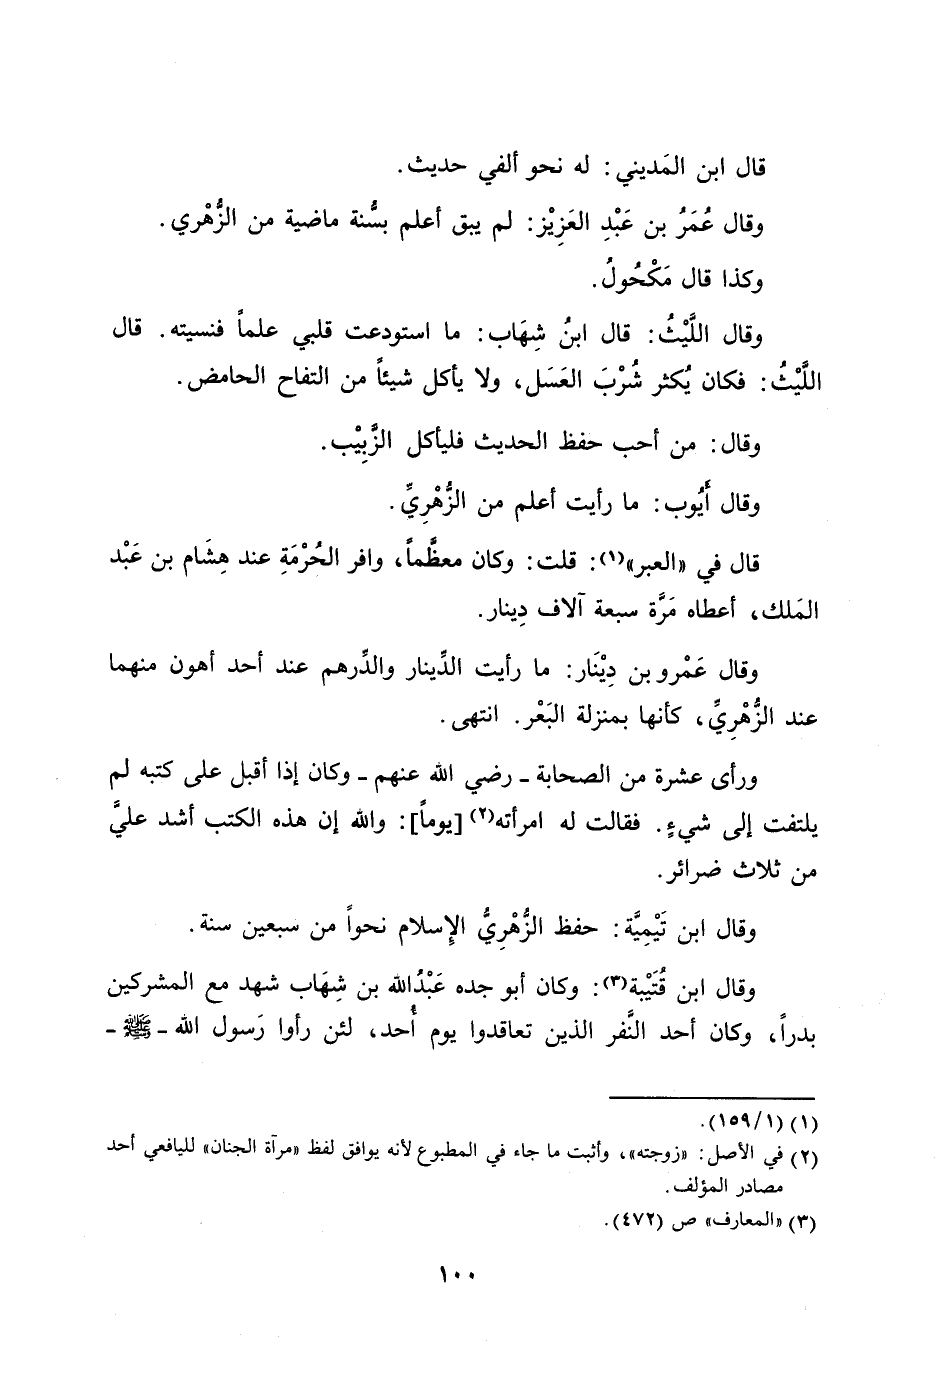 قال ابن المَديني: له نحو ألفي حديث.
وقال عُمَرُ بن عَبْدِ العَزِيْز: لم يبق أعلم بسُّنة ماضية من الزُّهْري.
وكذا قال مَكْحُولُ.
وقال اللَّيْثُ: قال ابنُ شِهَاب: ما استودعت قلبي علماً فنسيته. قال
اللَّيْثُ: فكان يُكثر شُرْبَ العَسَل، ولا يأكل شيئاً من التفاح الحامض.
وقال: من أحب حفظ الحديث فليأكل الزَّبِيْب.
وقال أَيُوب: ما رأيت أعلم من الزُّهْرِيِّ.
قال في «العبر»(١): قلت: وكان معظَّماً، وافر الحُرْمَةِ عند هِشَام بن عَبْد
المَلك، أعطاه مَرَّة سبعة آلاف دِينار.
وقال عَمْرو بن دِيْنَار: ما رأيت الدِّينار والدِّرهم عند أحد أهون منهما
عند الزُّهْرِيِّ، كأنها بمنزلة البَعْر. انتهى.
ورأى عشرة من الصحابة - رضي الله عنهم - وكان إذا أقبل على كتبه لم
يلتفت إلى شيءٍ. فقالت له امرأته(٢) [يوماً]: والله إن هذه الكتب أشد عليَّ
من ثلاث ضرائر.
وقال ابن تَيْمِيَّة: حفظ الزُّهْرِيُّ الإِسلام نحواً من سبعين سنة.
وقال ابن قُتَيْبة(٣): وكان أبو جده عَبْدُالله بن شِهَاب شهد مع المشركين
بدراً، وكان أحد النَّفر الذين تعاقدوا يوم أُحد، لئن رأوا رَسول الله - ﷺ -
(١) (١/١٥٩).
(٢) في الأصل: «زوجته»، وأثبت ما جاء في المطبوع لأنه يوافق لفظ «مرآة الجنان» لليافعي أحد
مصادر المؤلف.
(٣) «المعارف» ص (٤٧٢).
١٠٠